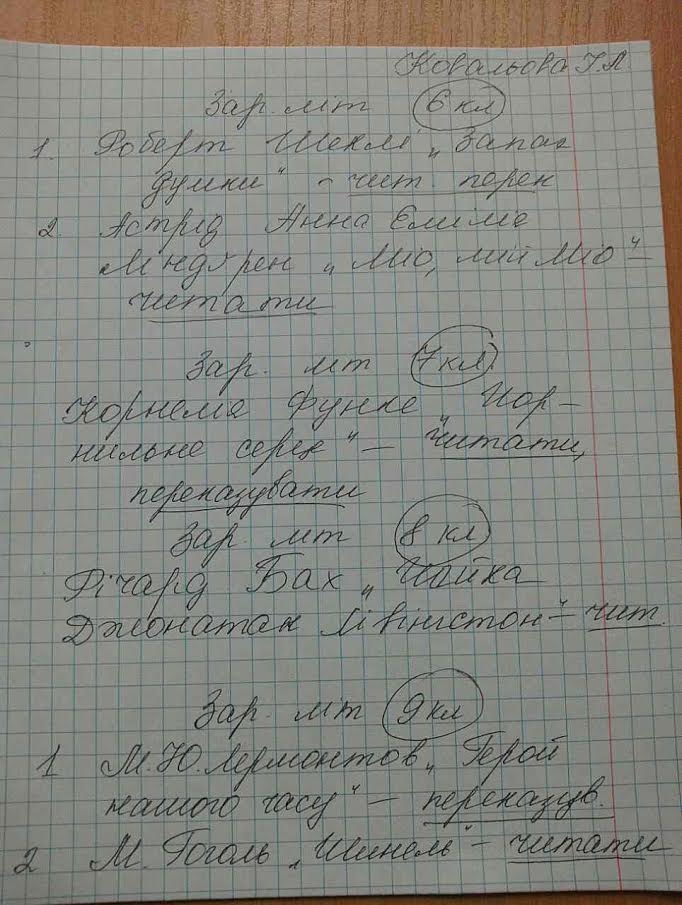 Ковальова Г.Л
Зар. літ 6 кл
1. Роберт Шеклі „Запах
думки" - чит. перек
2 Астрід Анна Емілія
Ліндгрен „Міо, мій Міо" -
читати
Зар. літ 7 кл
Корнелія Функе „Чор-
нильне серце" - читати,
переказувати
Зар. літ 8 кл
Річард Бах „Чайка
Джонатан Лівінгстон" - чит.
Зар. літ 9 кл
1 М.Ю.Лермонтов „Герой
нашого часу" - переказув.
2 М. Гоголь „Шинель" - читати